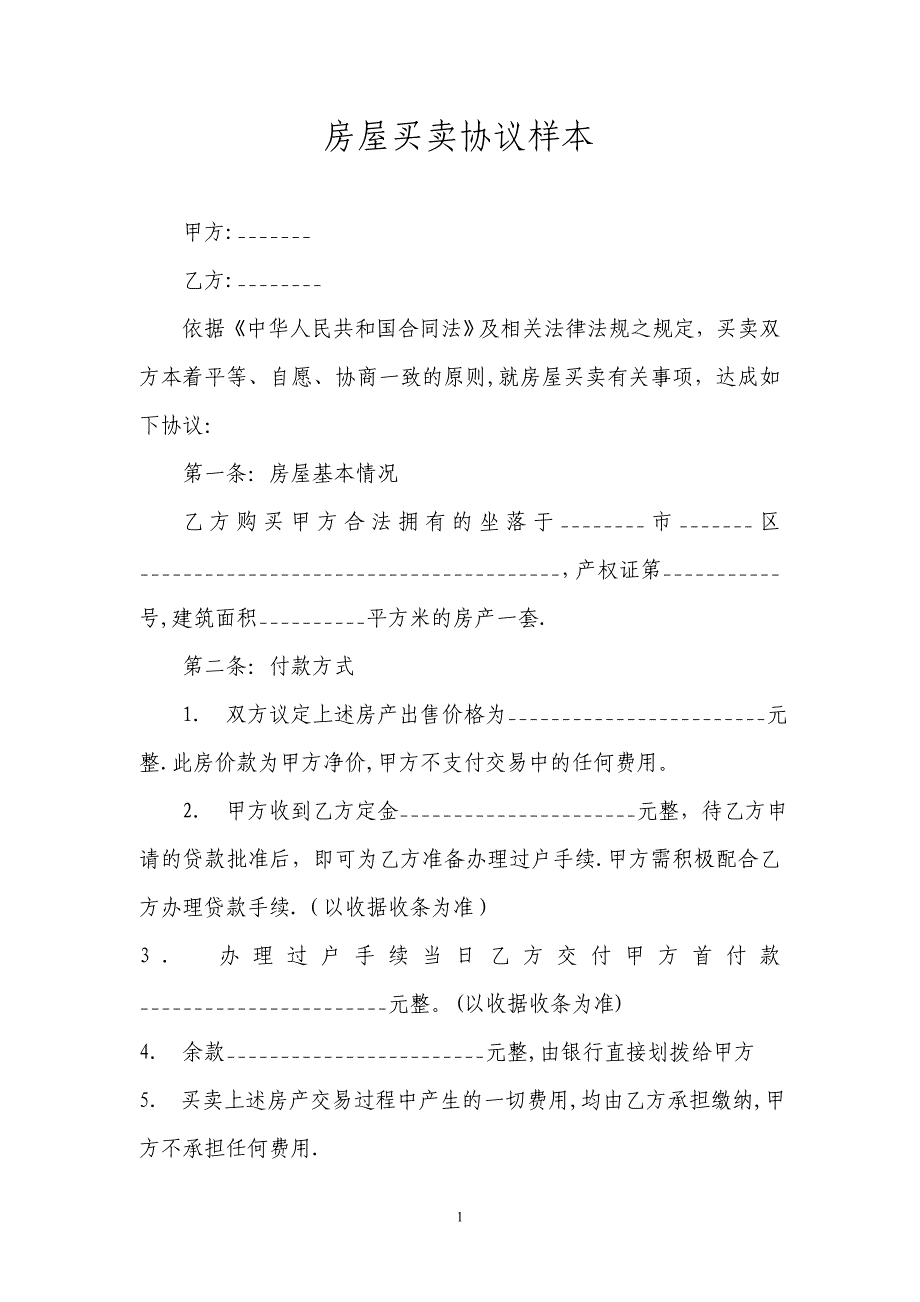 房屋买卖协议样本
甲方:_______
乙方:________
依据《中华人民共和国合同法》及相关法律法规之规定，买卖双
方本着平等、自愿、协商一致的原则,就房屋买卖有关事项，达成如
下协议:
第一条：房屋基本情况
乙方购买甲方合法拥有的坐落于________市_______区
_______________________________________,产权证第___________
号,建筑面积__________平方米的房产一套.
第二条：付款方式
1. 双方议定上述房产出售价格为________________________元
整.此房价款为甲方净价,甲方不支付交易中的任何费用。
2. 甲方收到乙方定金______________________元整，待乙方申
请的贷款批准后，即可为乙方准备办理过户手续.甲方需积极配合乙
方办理贷款手续.（以收据收条为准）
3. 办理过户手续当日乙方交付甲方首付款
_______________________元整。(以收据收条为准)
4. 余款________________________元整,由银行直接划拨给甲方
5. 买卖上述房产交易过程中产生的一切费用,均由乙方承担缴纳,甲
方不承担任何费用.
1